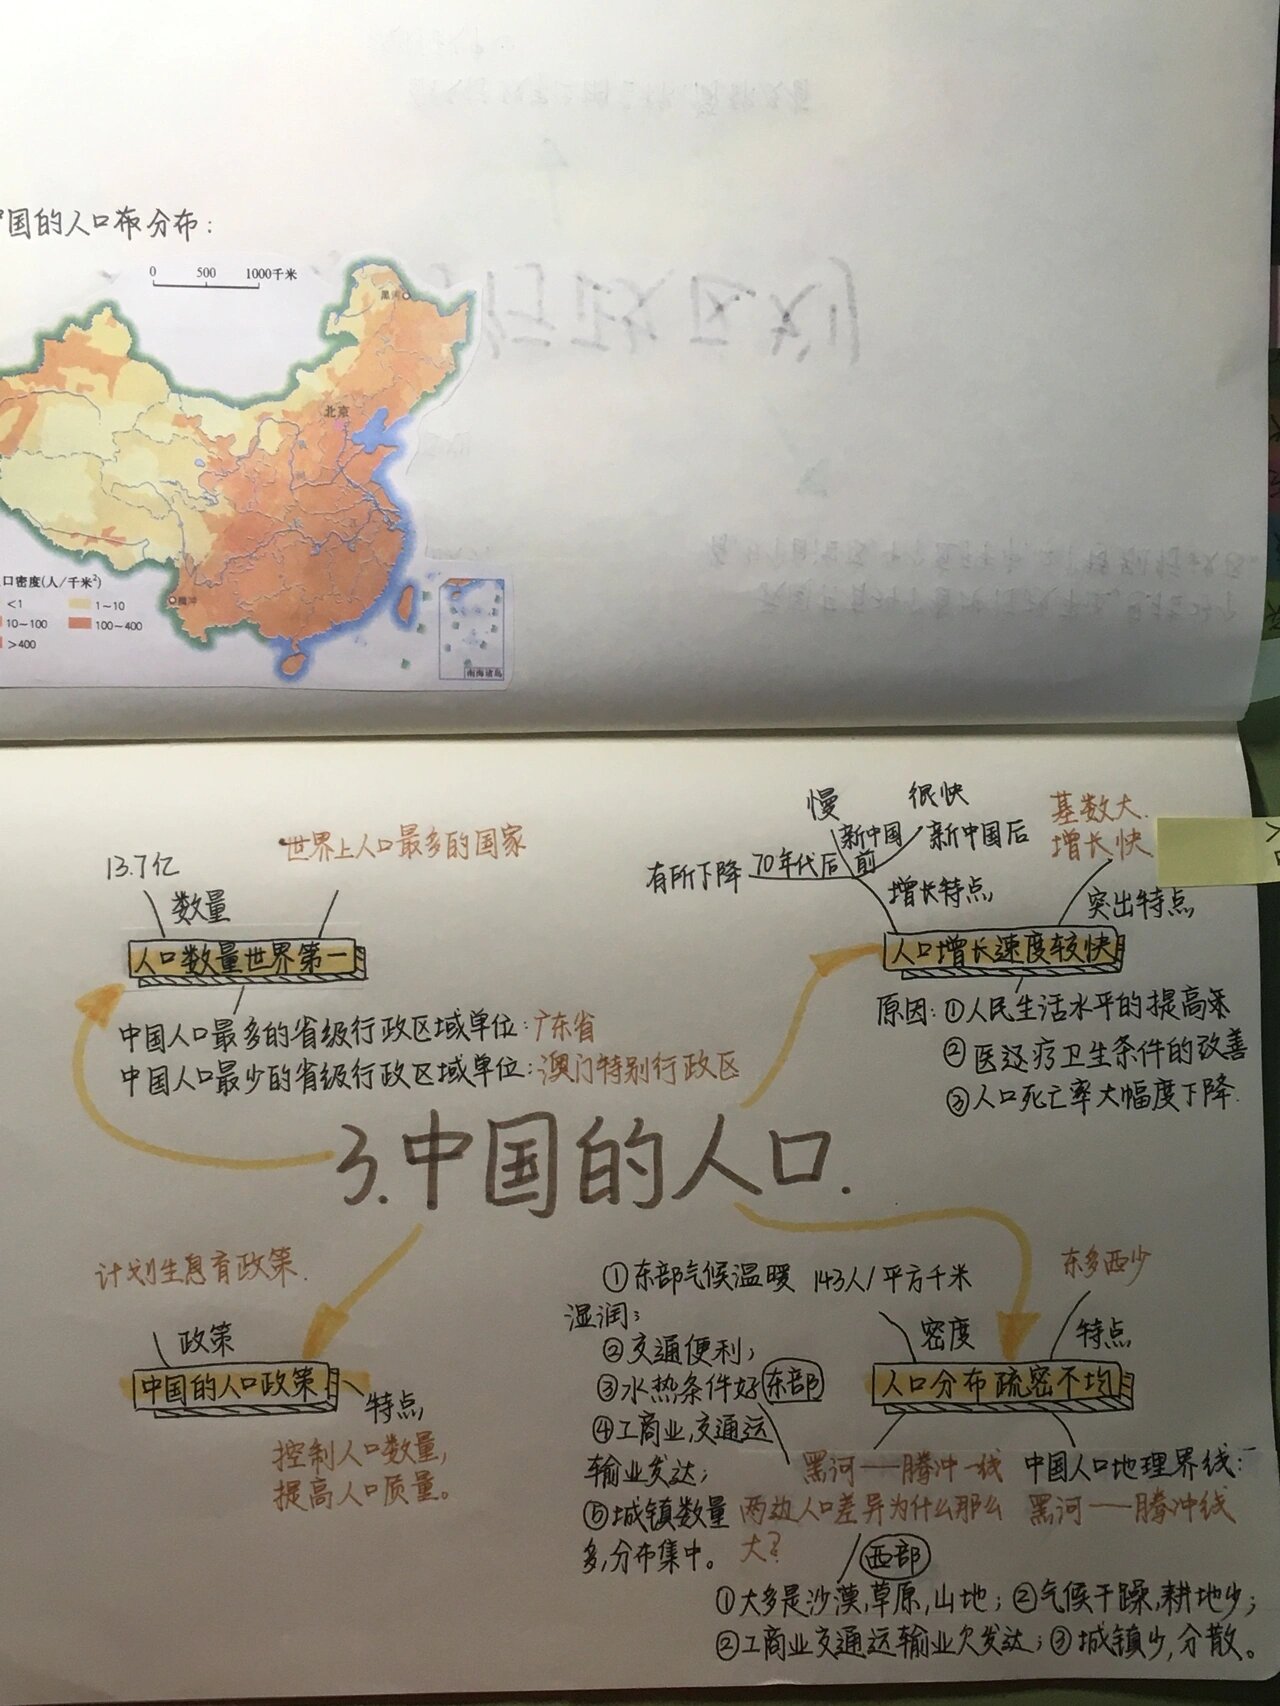 国的人口布分布：
0 500 1000千米
黑河
北京
腾冲
口密度(人/千米²)
<1 1~10
10~100 100~400
>400
南海诸岛
13.7亿
世界上人口最多的国家
数量
人口数量世界第一
中国人口最多的省级行政区域单位：广东省
中国人口最少的省级行政区域单位：澳门特别行政区
慢 很快
新中国前 新中国后
有所下降 70年代后
增长特点
基数大.
增长快
突出特点
人口增长速度较快
原因：①人民生活水平的提高
②医疗卫生条件的改善
③人口死亡率大幅度下降.
3.中国的人口.
计划生育政策.
政策
中国的人口政策
特点
控制人口数量，
提高人口质量。
①东部气候温暖
湿润；
②交通便利；
③水热条件好
东部
④工商业，交通运
输业发达；
⑤城镇数量
多，分布集中。
143人/平方千米
密度
东多西少
特点
人口分布疏密不均
黑河——腾冲一线
两边人口差异为什么那么
大？
中国人口地理界线：
黑河——腾冲线
西部
①大多是沙漠，草原，山地；②气候干躁，耕地少；
②工商业交通运输业欠发达；③城镇少，分散。